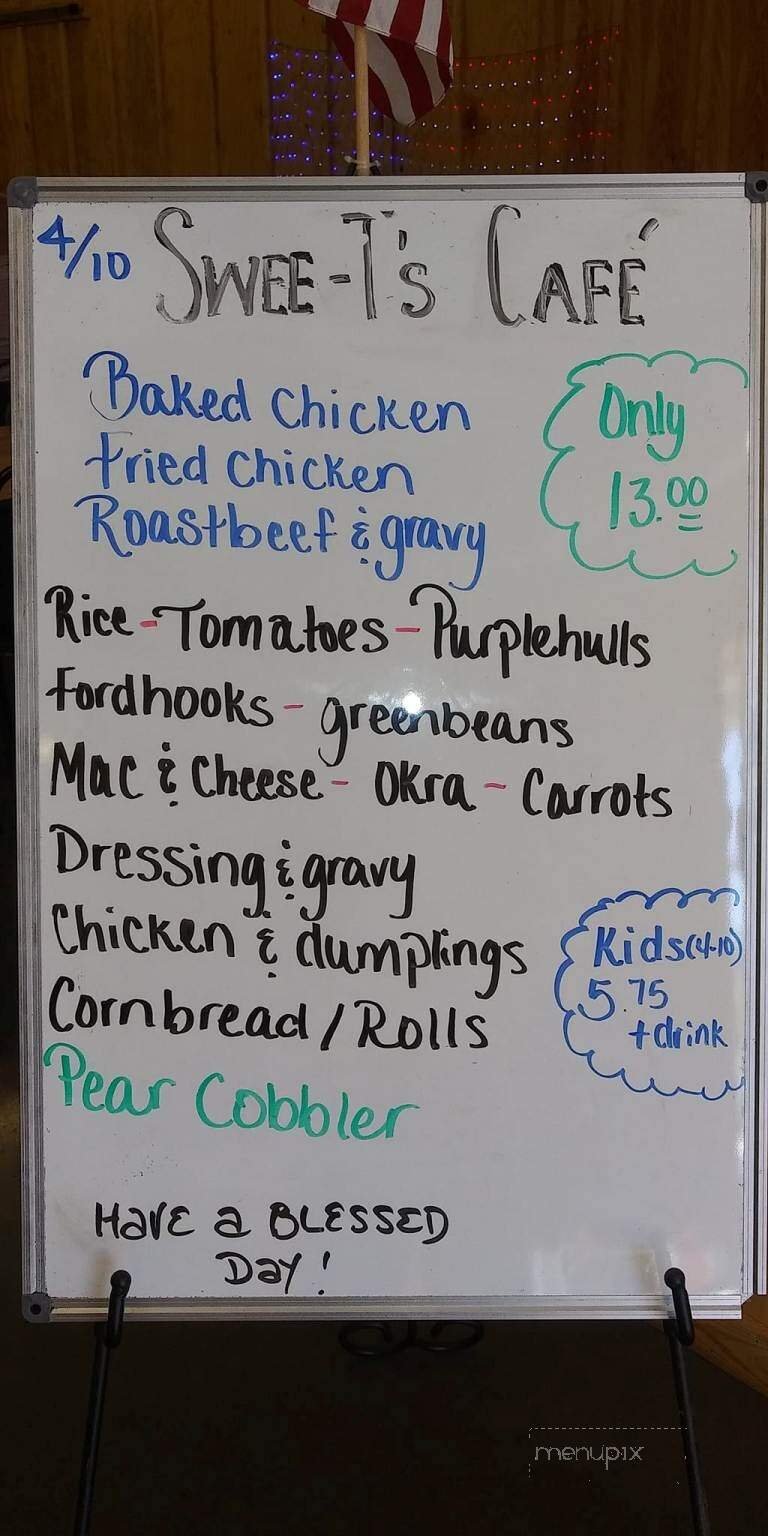 4/10 SWEE-T's CAFÉ
Baked Chicken
Fried Chicken
Roastbeef & gravy
Only
13.00
Rice - Tomatoes - Purplehulls
Fordhooks - greenbeans
Mac & Cheese - Okra - Carrots
Dressing & gravy
Chicken & dumplings
Cornbread / Rolls
Kids (4-10)
5.75
+ drink
Pear Cobbler
HAVE A BLESSED
DAY!
menupix